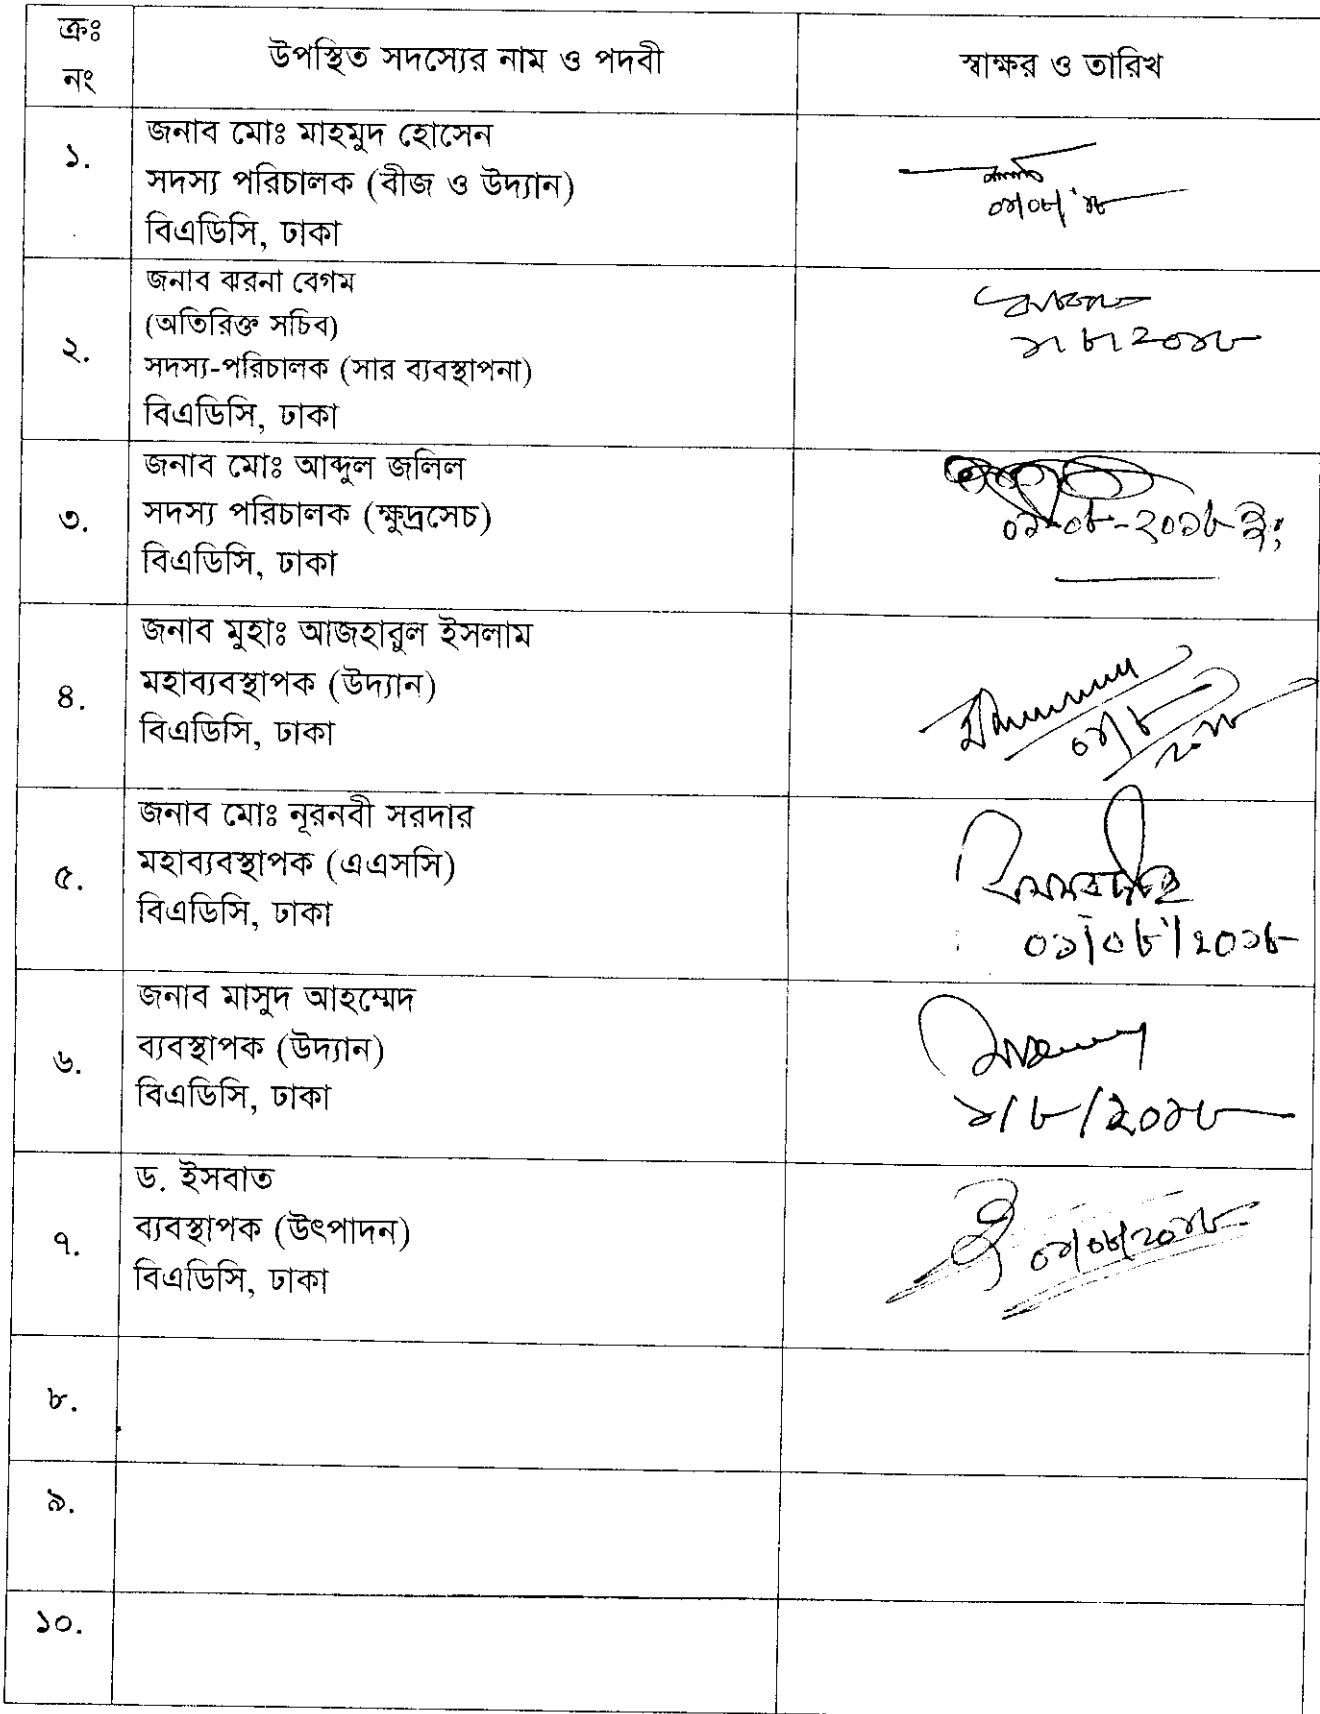 ক্রঃ নং উপস্থিত সদস্যের নাম ও পদবী স্বাক্ষর ও তারিখ
১.
জনাব মোঃ মাহমুদ হোসেন
সদস্য পরিচালক (বীজ ও উদ্যান)
বিএডিসি, ঢাকা
০১/০৮/'১৮
২.
জনাব ঝরনা বেগম
(অতিরিক্ত সচিব)
সদস্য-পরিচালক (সার ব্যবস্থাপনা)
বিএডিসি, ঢাকা
১/৮/২০১৮
৩.
জনাব মোঃ আব্দুল জলিল
সদস্য পরিচালক (ক্ষুদ্রসেচ)
বিএডিসি, ঢাকা
০১-০৮-২০১৮ ইং
৪.
জনাব মুহাঃ আজহারুল ইসলাম
মহাব্যবস্থাপক (উদ্যান)
বিএডিসি, ঢাকা
০১/৮
৫.
জনাব মোঃ নূরনবী সরদার
মহাব্যবস্থাপক (এএসসি)
বিএডিসি, ঢাকা
০১/০৮/২০১৮
৬.
জনাব মাসুদ আহম্মেদ
ব্যবস্থাপক (উদ্যান)
বিএডিসি, ঢাকা
১/৮/২০১৮
৭.
ড. ইসবাত
ব্যবস্থাপক (উৎপাদন)
বিএডিসি, ঢাকা
০১/০৮/২০১৮
৮.
৯.
১০.